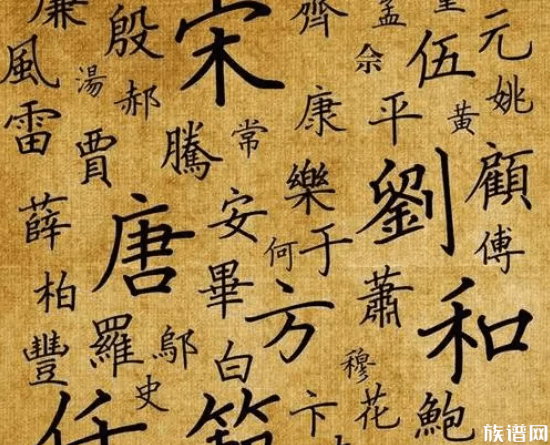 廉 殷 宋 齊 孟 元
風 湯 郝 佘 伍 姚
雷 賈 騰 常 康 平 黃 顧
薛 唐 安 樂 劉 傅
柏 畢 何 于 蕭 和
豐 羅 鄔 白 方 穆
史 卞 花 鮑
任
族谱网